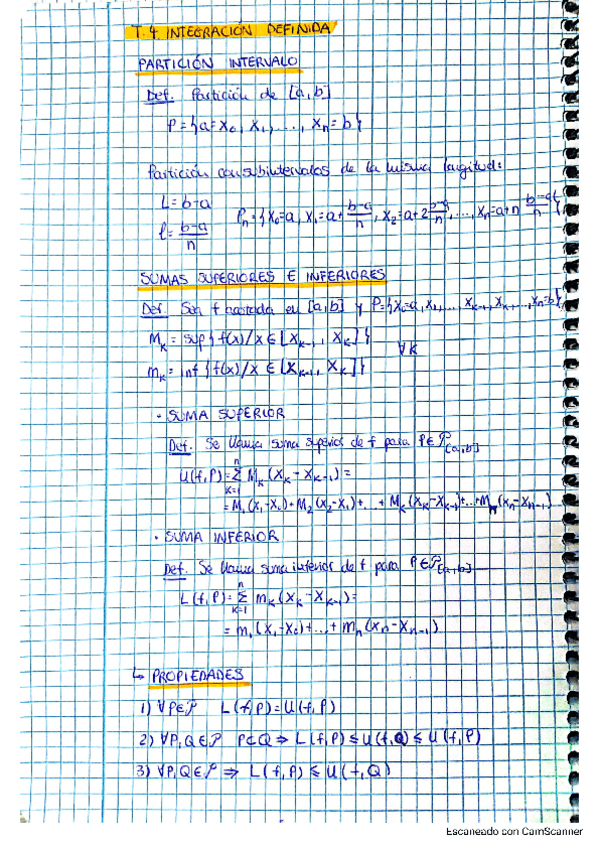 T.4. INTEGRACIÓN DEFINIDA
PARTICIÓN INTERVALO
Def. Partición de [a,b]
P={a=x₀, x₁, ..., xₙ=b}
Partición con subintervalos de la misma longitud:
L=b-a
l=(b-a)/n
Pₙ={x₀=a, x₁=a+(b-a)/n, x₂=a+2(b-a)/n, ..., xₙ=a+n(b-a)/n}
SUMAS SUPERIORES E INFERIORES
Def. Sea f acotada en [a,b] y P={x₀=a, x₁, ..., xₖ₋₁, xₖ, ..., xₙ=b}
Mₖ = sup{f(x)/x∈[xₖ₋₁, xₖ]}
∀k
mₖ = inf{f(x)/x∈[xₖ₋₁, xₖ]}
· SUMA SUPERIOR
Def. Se llama suma superior de f para P∈𝒫[a,b]
U(f,P)=∑ₖ₌₁ⁿ Mₖ(xₖ-xₖ₋₁)=
=M₁(x₁-x₀)+M₂(x₂-x₁)+...+Mₖ(xₖ-xₖ₋₁)+...+Mₙ(xₙ-xₙ₋₁)
· SUMA INFERIOR
Def. Se llama suma inferior de f para P∈𝒫[a,b]
L(f,P)=∑ₖ₌₁ⁿ mₖ(xₖ-xₖ₋₁)=
=m₁(x₁-x₀)+...+mₙ(xₙ-xₙ₋₁)
↳ PROPIEDADES
1) ∀P∈𝒫 L(f,P)=U(f,P)
2) ∀P,Q∈𝒫 P⊂Q ⇒ L(f,P)≤U(f,Q)≤U(f,P)
3) ∀P,Q∈𝒫 ⇒ L(f,P)≤U(f,Q)
Escaneado con CamScanner